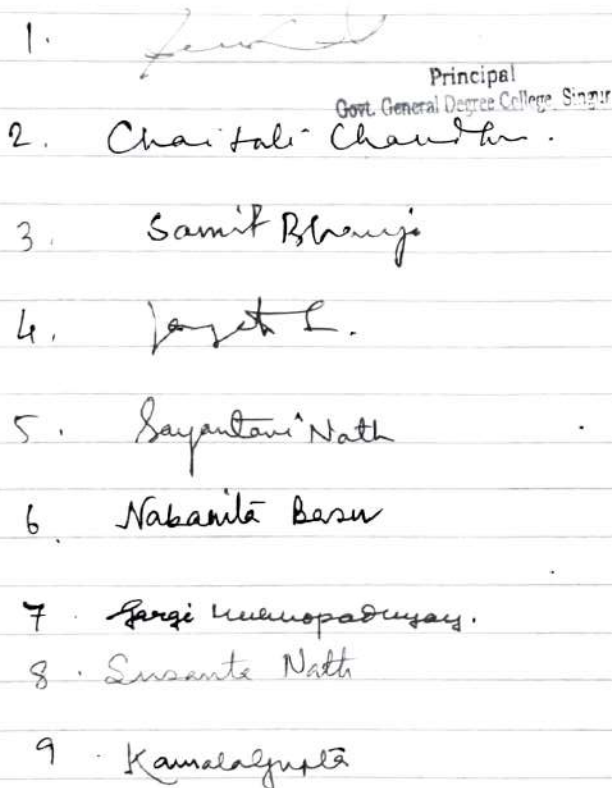 1.
Principal
Govt. General Degree College, Singur
2. Chaitali Chaudhuri.
3. Samit Bhanja
4.
5. Sayantani Nath
6. Nabanitā Basu
7. Gargi Mukhopadhyay.
8. Susanta Nath
9. Kamala Gupta